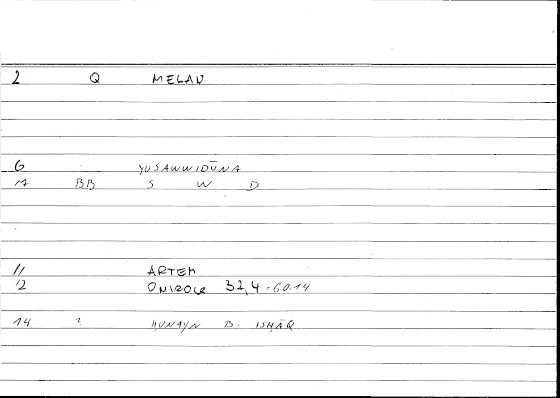 2 Q MELAN
6 YUSAWWIDŪNA
11 BB S W D
11 ARTEM
12 ONIROCR 32,4 = 60.14
14 ? ḤUNAYN B. ISḤĀQ